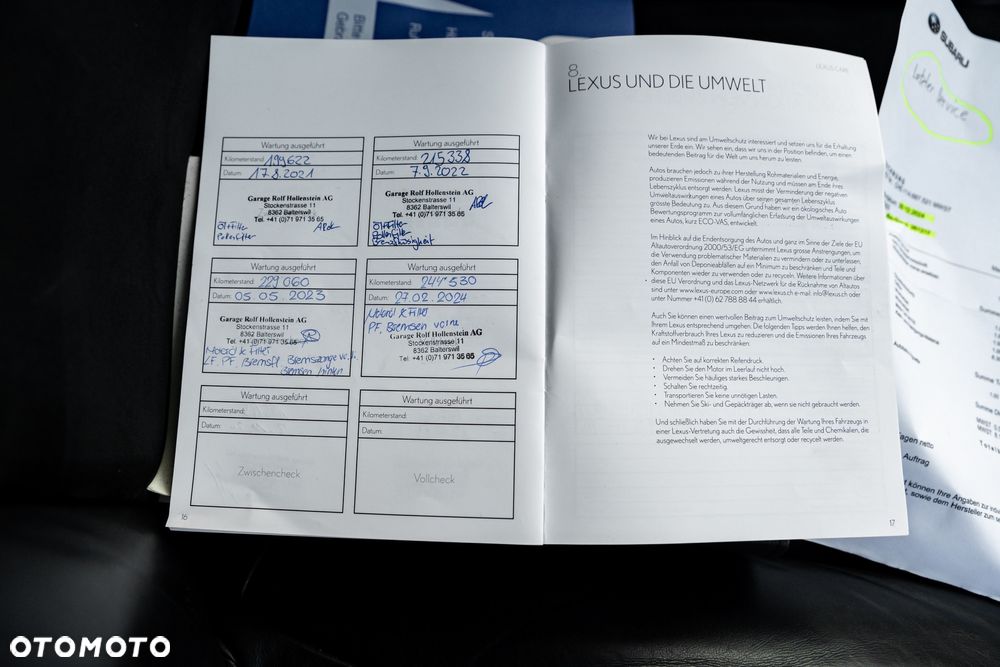 Bitte
Gebr
Wartung ausgeführt
Kilometerstand: 199622
Datum: 17.8.2021
Garage Rolf Hollenstein AG
Stockenstrasse 11
8362 Balterswil
Tel. +41 (0)71 971 35 65
Ölfilter
Pollenfilter
Wartung ausgeführt
Kilometerstand: 215338
Datum: 7.9.2022
Garage Rolf Hollenstein AG
Stockenstrasse 11
8362 Balterswil
Tel. +41 (0)71 971 35 65
Ölfilter
Pollenfilter
Bremsflüssigkeit
Wartung ausgeführt
Kilometerstand: 229060
Datum: 05.05.2023
Garage Rolf Hollenstein AG
Stockenstrasse 11
8362 Balterswil
Tel. +41 (0)71 971 35 65
Motoröl & Filter
LF, PF, Bremsfl.
Bremsen hinten
Wartung ausgeführt
Kilometerstand: 244530
Datum: 27.02.2024
Motoröl & Filter
PF, Bremsen vorne
Garage Rolf Hollenstein AG
Stockenstrasse 11
8362 Balterswil
Tel. +41 (0)71 971 35 65
Wartung ausgeführt
Kilometerstand:
Datum:
Zwischencheck
Wartung ausgeführt
Kilometerstand:
Datum:
Vollcheck
16
LEXUS CARE
8.
LEXUS UND DIE UMWELT
Wir bei Lexus sind am Umweltschutz interessiert und setzen uns für die Erhaltung
unserer Erde ein. Wir sehen ein, dass wir uns in der Position befinden, um einen
bedeutenden Beitrag für die Welt um uns herum zu leisten.
Autos brauchen jedoch zu ihrer Herstellung Rohmaterialien und Energie,
produzieren Emissionen während der Nutzung und müssen am Ende ihres
Lebenszyklus entsorgt werden. Lexus misst der Verminderung der negativen
Umweltauswirkungen eines Autos über seinen gesamten Lebenszyklus
grösste Bedeutung zu. Aus diesem Grund haben wir ein ökologisches Auto
Bewertungsprogramm zur vollumfänglichen Erfassung der Umweltauswirkungen
eines Autos, kurz ECO-VAS, entwickelt.
Im Hinblick auf die Endentsorgung des Autos und ganz im Sinne der Ziele der EU
Altautoverordnung 2000/53/EG unternimmt Lexus grosse Anstrengungen, um
die Verwendung problematischer Materialien zu vermindern oder zu unterlassen,
den Anfall von Deponieabfällen auf ein Minimum zu beschränken und Teile und
Komponenten wieder zu verwenden oder zu recyceln. Weitere Informationen über
diese EU Verordnung und das Lexus-Netzwerk für die Rücknahme von Altautos
sind unter www.lexus-europe.com oder www.lexus.ch e-mail: info@lexus.ch oder
unter Nummer +41 (0) 62 788 88 44 erhältlich.
Auch Sie können einen wertvollen Beitrag zum Umweltschutz leisten, indem Sie mit
Ihrem Lexus entsprechend umgehen. Die folgenden Tipps werden Ihnen helfen, den
Kraftstoffverbrauch Ihres Lexus zu reduzieren und die Emissionen Ihres Fahrzeugs
auf ein Mindestmaß zu beschränken:
• Achten Sie auf korrekten Reifendruck.
• Drehen Sie den Motor im Leerlauf nicht hoch.
• Vermeiden Sie häufiges starkes Beschleunigen.
• Schalten Sie rechtzeitig.
• Transportieren Sie keine unnötigen Lasten.
• Nehmen Sie Ski- und Gepäckträger ab, wenn sie nicht gebraucht werden.
Und schließlich haben Sie mit der Durchführung der Wartung Ihres Fahrzeugs in
einer Lexus-Vertretung auch die Gewissheit, dass alle Teile und Chemikalien, die
ausgewechselt werden, umweltgerecht entsorgt oder recycelt werden.
17
SUBARU
Letzter Service
Summe
MWST
MWST
Totale
agen netto
Auftrag
können Ihre Angaben zur
, sowie dem Hersteller zum
OTOMOTO